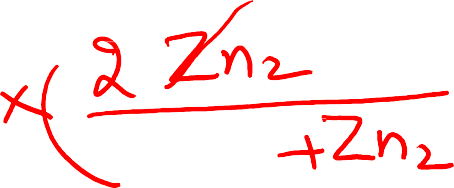 x( 2 Zn2
+Zn2